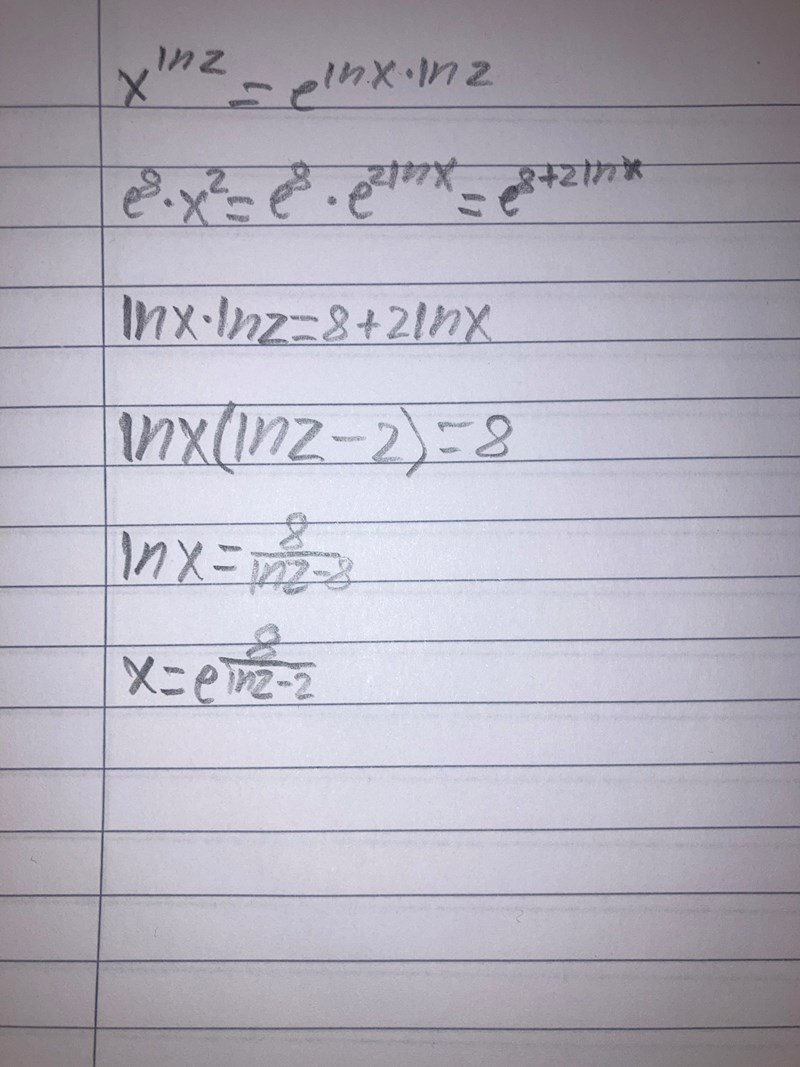 x^{ln z} = e^{ln x · ln z}
e^8 · x^2 = e^8 · e^{2 ln x} = e^{8+2 ln x}
ln x · ln z = 8 + 2 ln x
ln x (ln z − 2) = 8
ln x = \frac{8}{ln z − 8}
x = e^{\frac{8}{ln z − 2}}